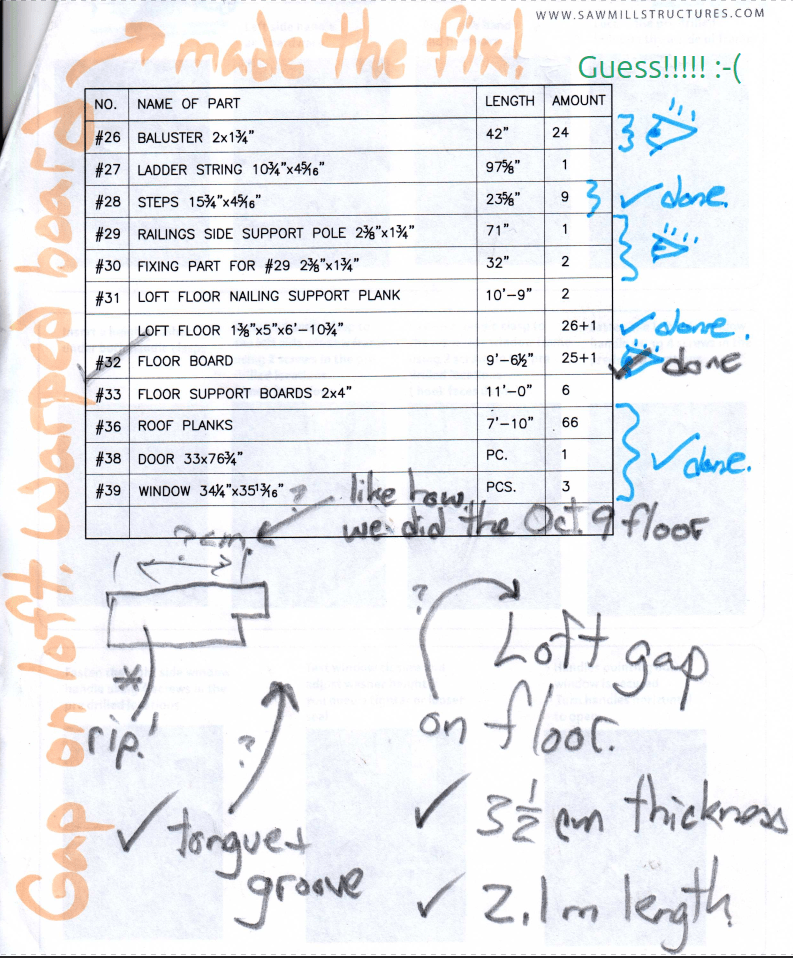 WWW.SAWMILLSTRUCTURES.COM
made the fix!
Guess!!!!! :-(
Gap on loft. Warped board
NO. NAME OF PART LENGTH AMOUNT
#26 BALUSTER 2x1¾" 42" 24
#27 LADDER STRING 10¾"x4⁵⁄₁₆" 97⅝" 1
#28 STEPS 15¾"x4⁵⁄₁₆" 23⅝" 9 done.
#29 RAILINGS SIDE SUPPORT POLE 2⅜"x1¾" 71" 1
#30 FIXING PART FOR #29 2⅜"x1¾" 32" 2
#31 LOFT FLOOR NAILING SUPPORT PLANK 10'-9" 2
LOFT FLOOR 1⅜"x5"x6'-10¾" 26+1 ✓ done.
#32 FLOOR BOARD 9'-6½" 25+1 ✓ done
#33 FLOOR SUPPORT BOARDS 2x4" 11'-0" 6
#36 ROOF PLANKS 7'-10" 66
#38 DOOR 33x76¾" PC. 1 ✓ done.
#39 WINDOW 34¼"x35¹³⁄₁₆" PCS. 3
? like how
we did the Oct. 9 floor
? cm.
* rip!
?
✓ tongue +
groove
?
Loft gap
on floor.
✓ 3½ cm thickness
✓ 2.1m length